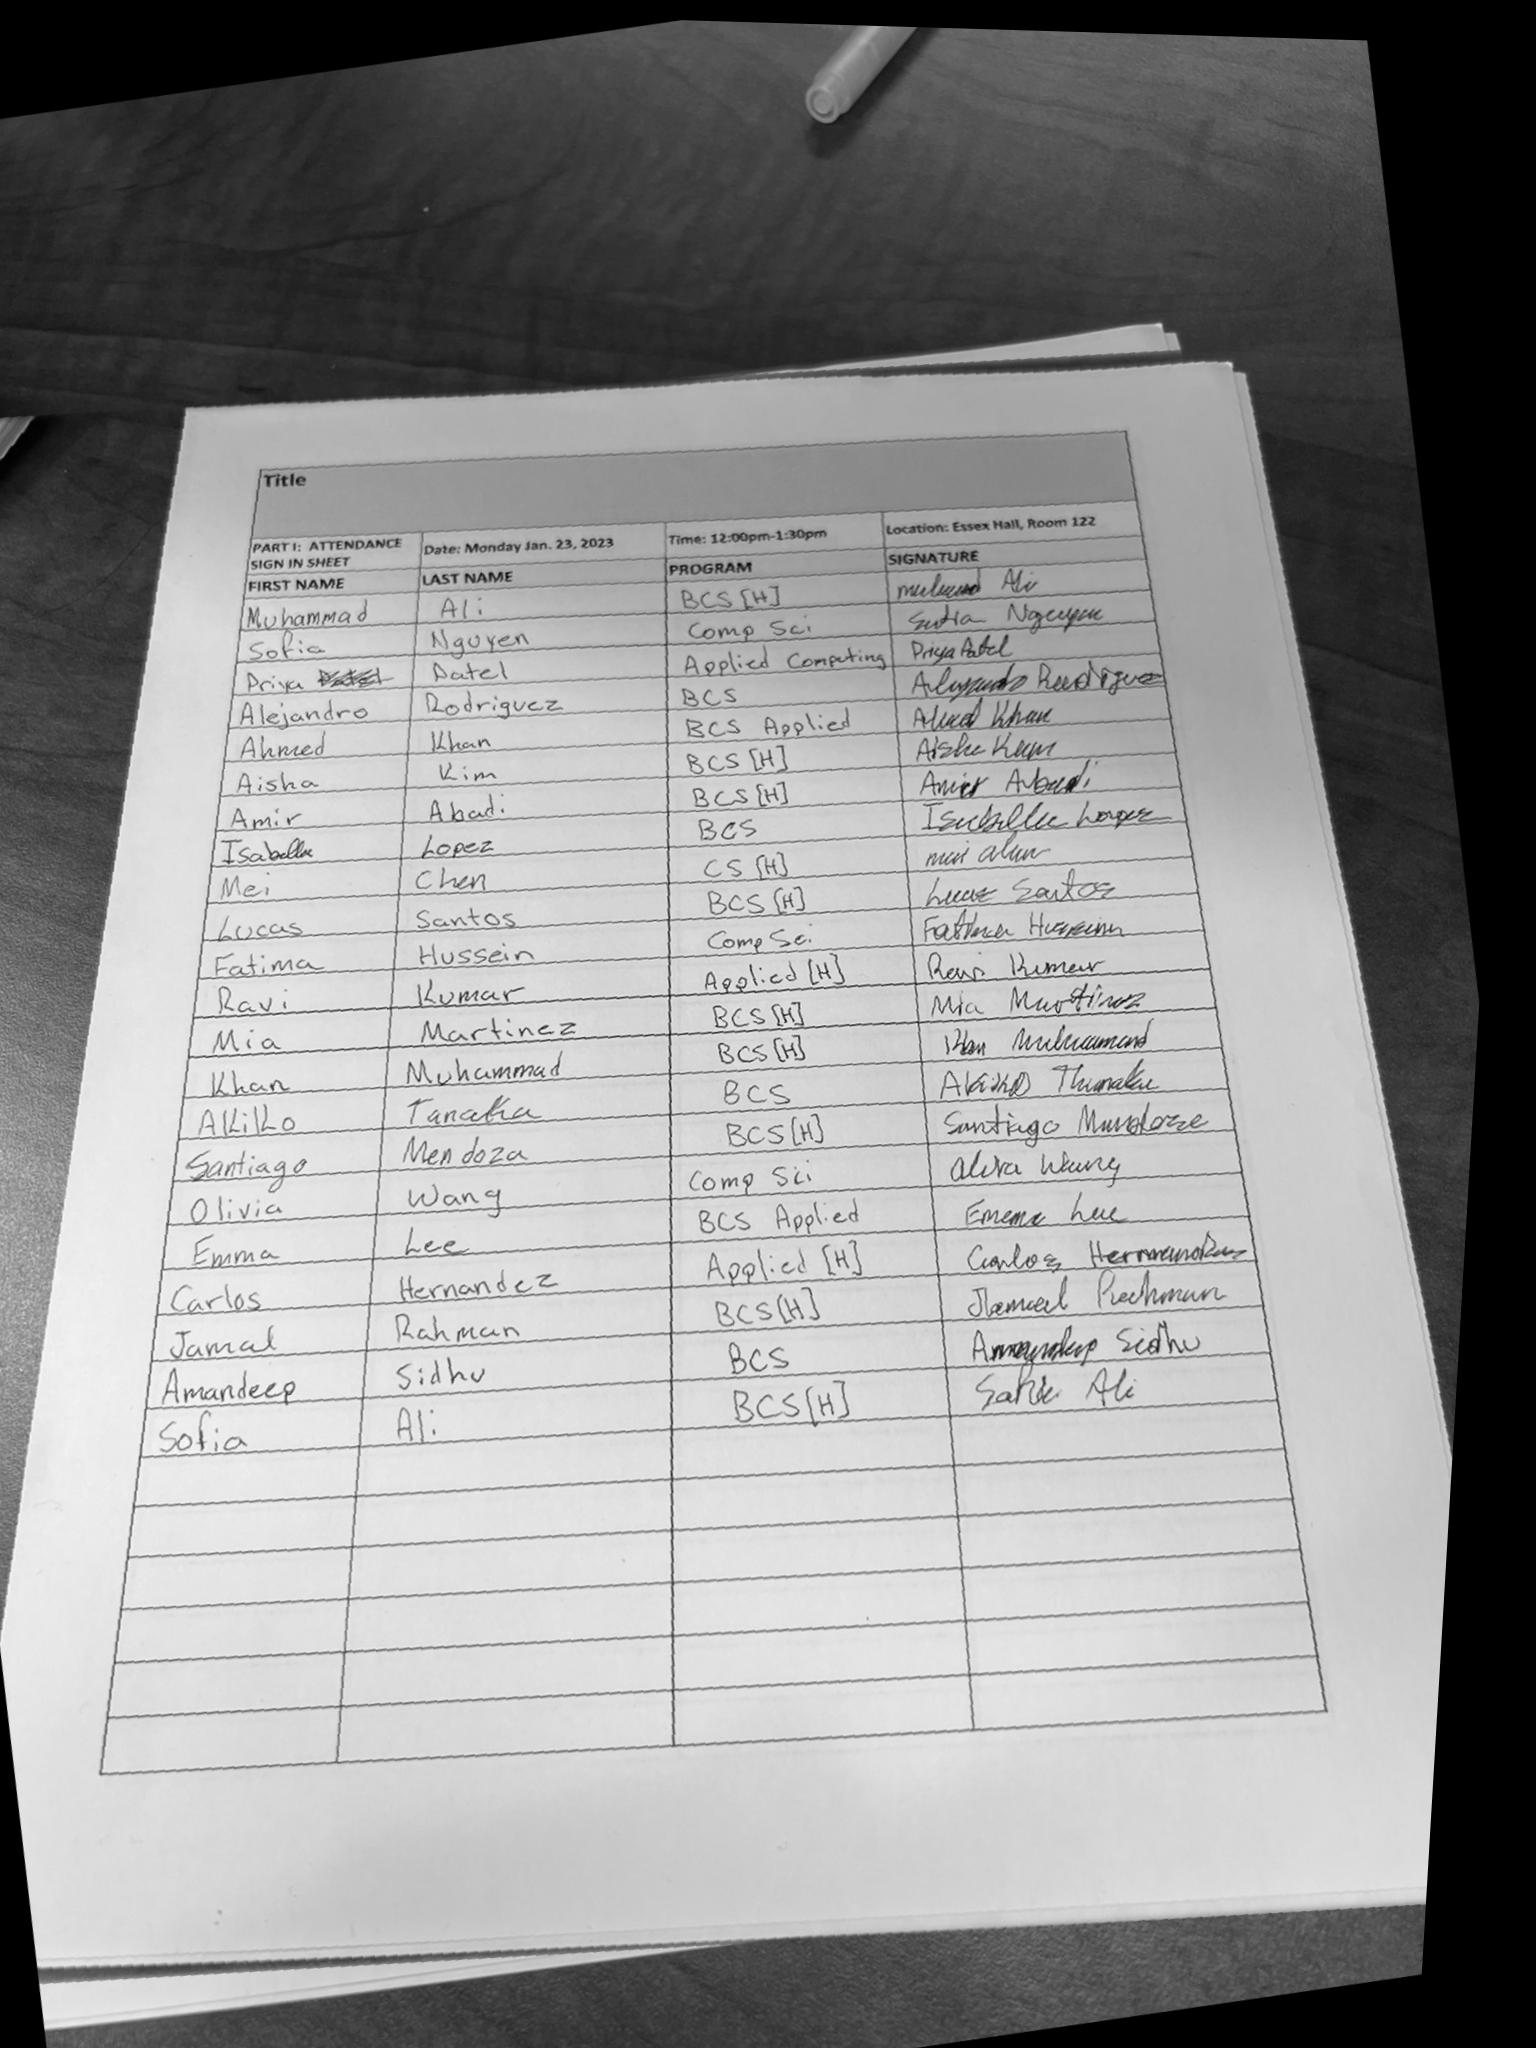 Title
PART I: ATTENDANCE SIGN IN SHEET Date: Monday Jan. 23, 2023 Time: 12:00pm-1:30pm Location: Essex Hall, Room 122
FIRST NAME LAST NAME PROGRAM SIGNATURE
Muhammad Ali BCS [H] Ali
Sofia Nguyen Comp Sci Nguyen
Priya Patel Applied Computing Priya Patel
Alejandro Rodriguez BCS Alejandro Rodriguez
Ahmed Khan BCS Applied Ahmed Khan
Aisha Kim BCS [H] Aisha
Amir Abadi BCS [H] Amir Abadi
Isabella Lopez BCS Isabella Lopez
Mei Chen CS [H]
Lucas Santos BCS [H] Lucas Santos
Fatima Hussein Comp Sci Fatima Hussein
Ravi Kumar Applied [H] Ravi Kumar
Mia Martinez BCS [H] Mia Martinez
Khan Muhammad BCS [H] Khan Muhammad
Akiko Tanaka BCS Akiko
Santiago Mendoza BCS [H] Santiago Mendoza
Olivia Wang Comp Sci Wang
Emma Lee BCS Applied Emma Lee
Carlos Hernandez Applied [H] Carlos Hernandez
Jamal Rahman BCS [H] Jamal Rahman
Amandeep Sidhu BCS Amandeep Sidhu
Sofia Ali BCS [H] Ali